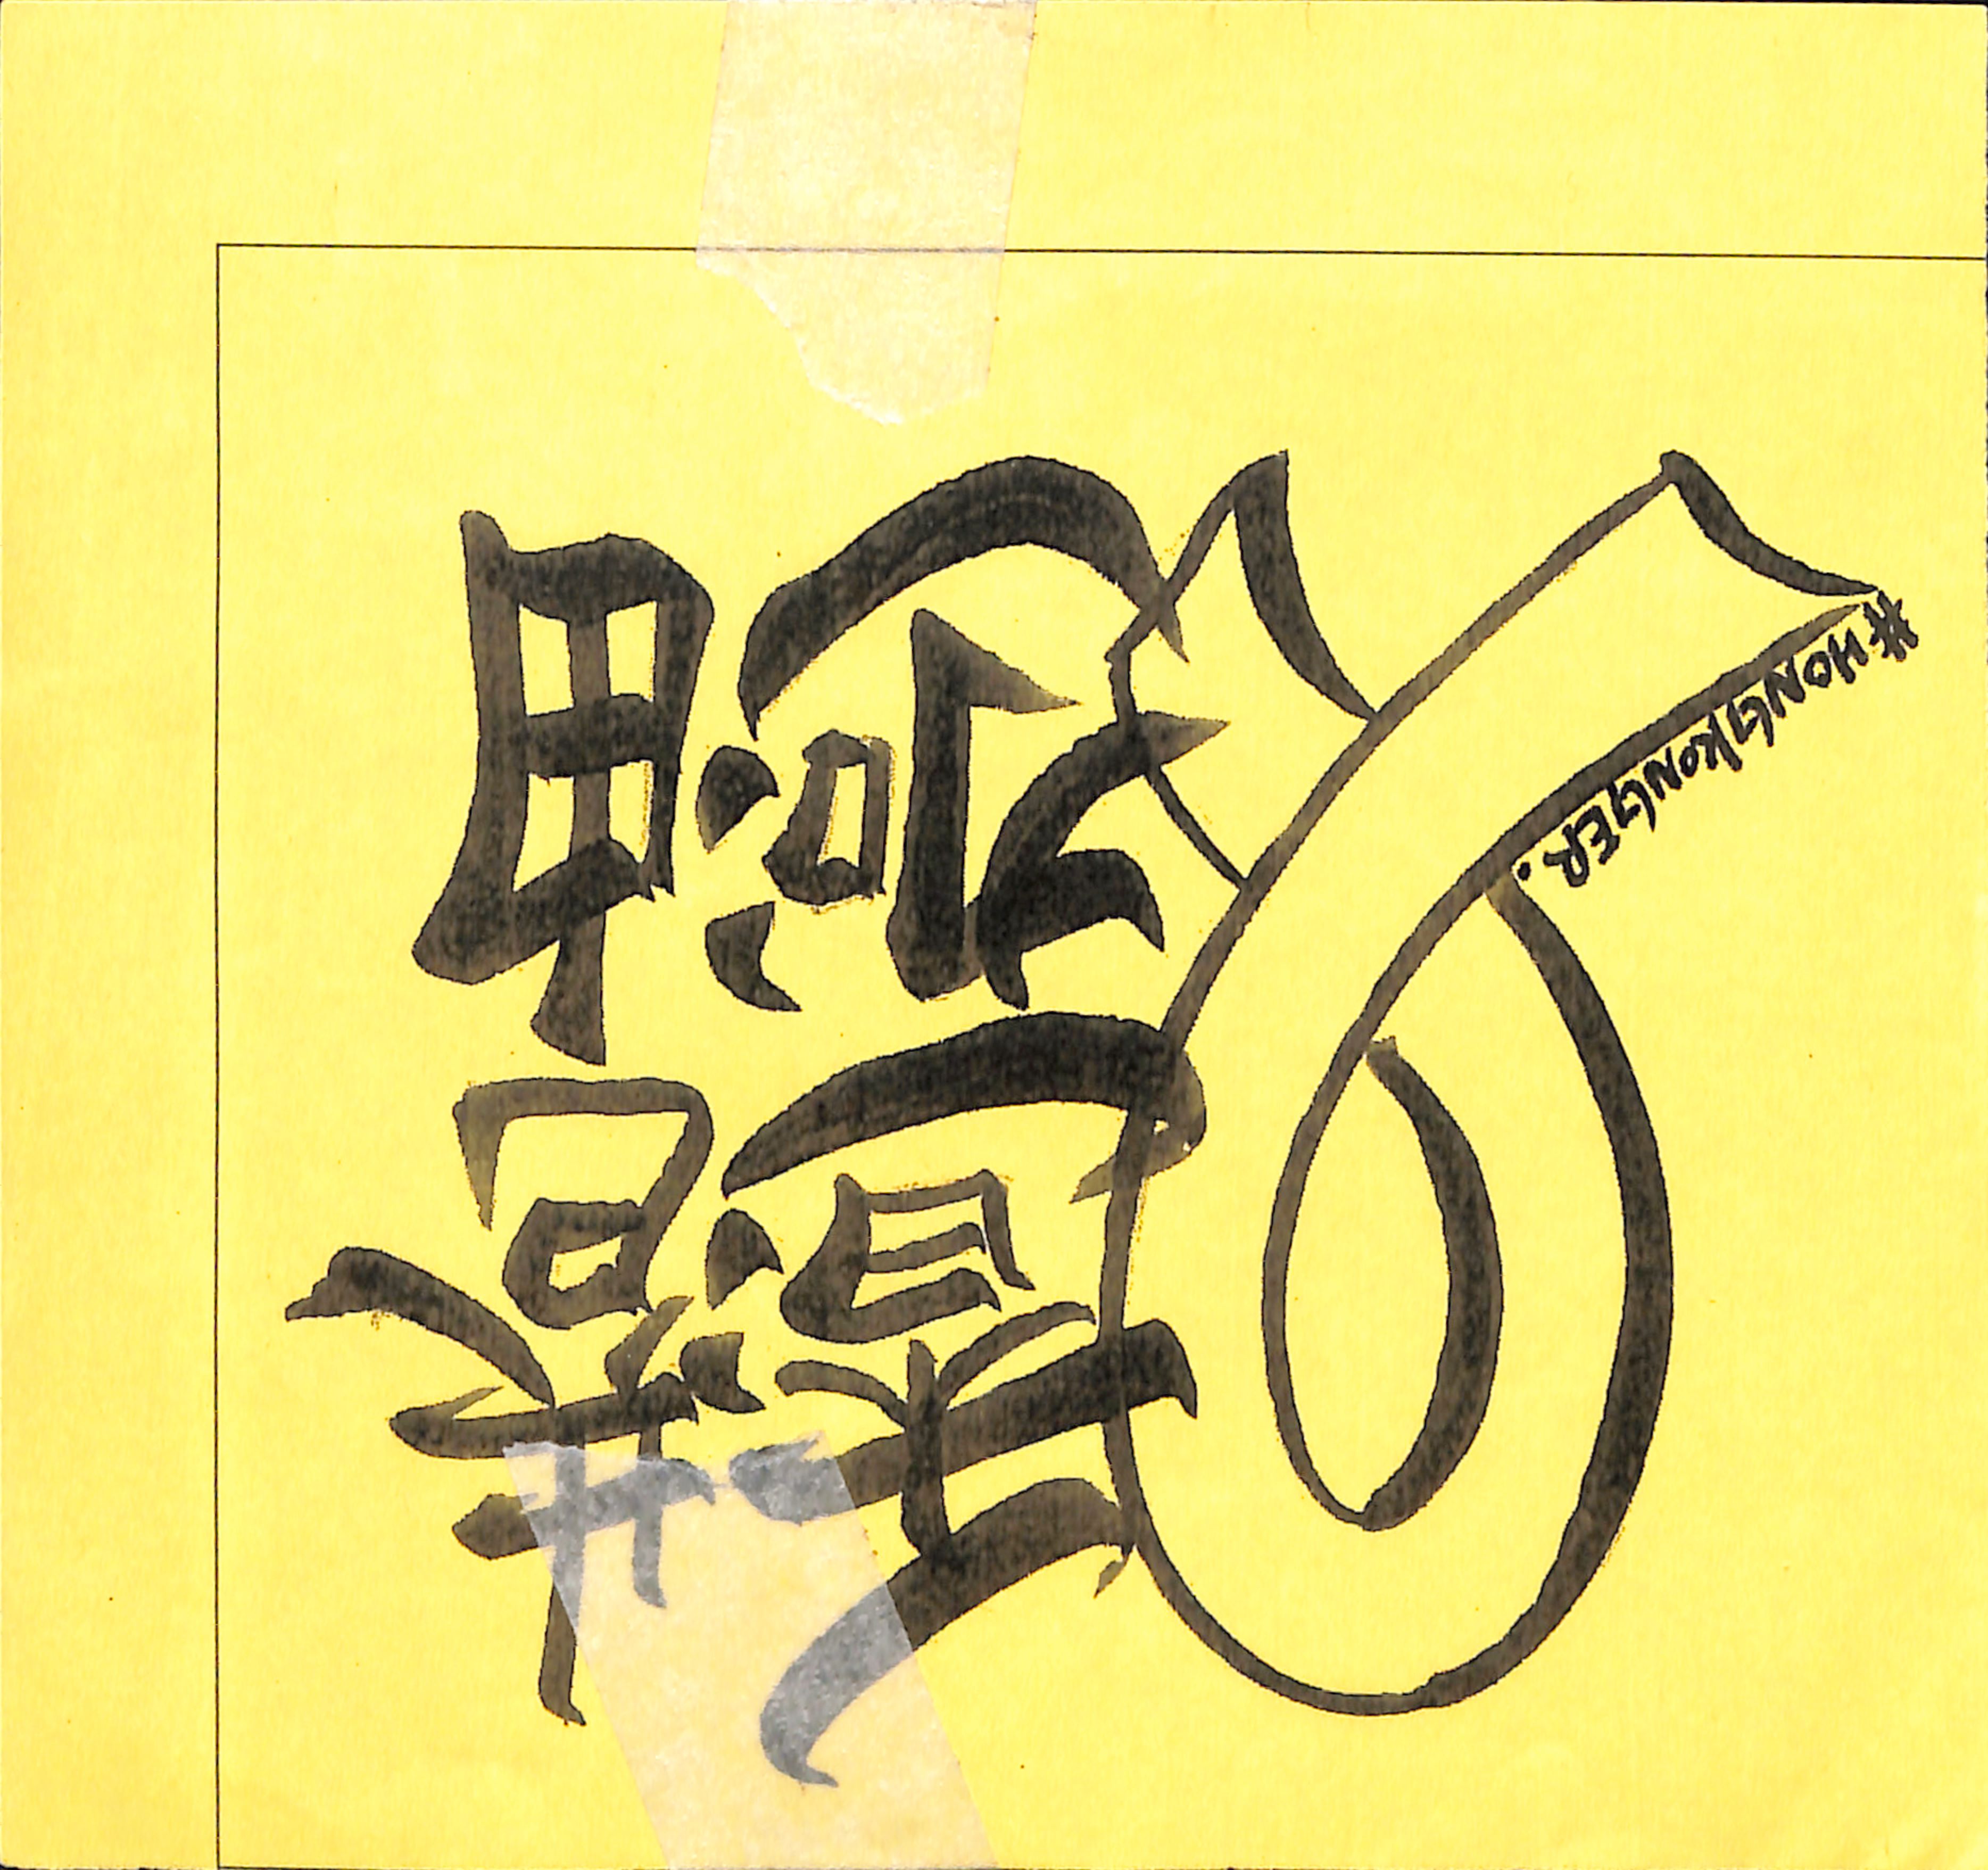 香港
加油
#HONGKONGER.